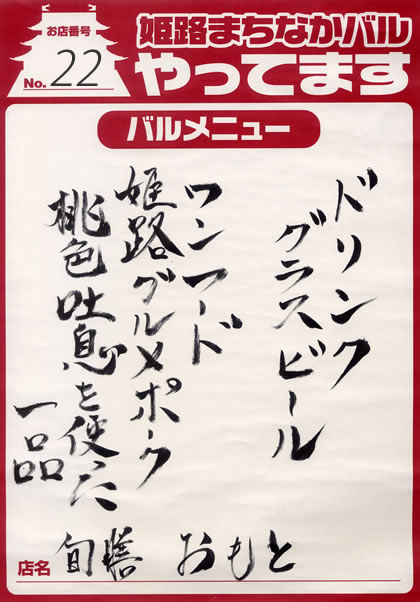 お店番号
No. 22
姫路まちなかバル
やってます
バルメニュー
ドリンク
グラスビール
ワンフード
姫路グルメポーク
桃色吐息を使った
一品
店名 旬膳 おもと